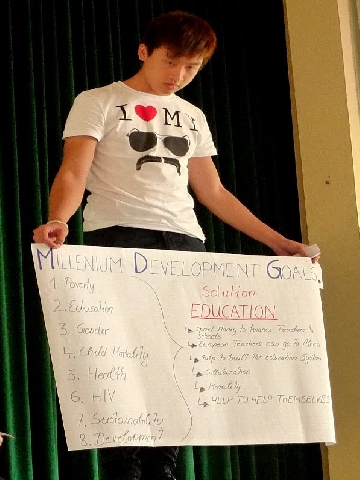 I ♥ M I
MILLENIUM DEVELOPMENT GOALS
1. Poverty
2. Education
3. Gender
4. Child Morality
5. Health
6. HIV
7. Sustainability
8. Development
Solution
EDUCATION
↳ spent money to finance Teachers &
Schools
↳ European Teachers can go to Africa
↳ Help to built the education System
↳ Collaboration
↳ Morality
↳ HELP TO HELP THEMSELVES